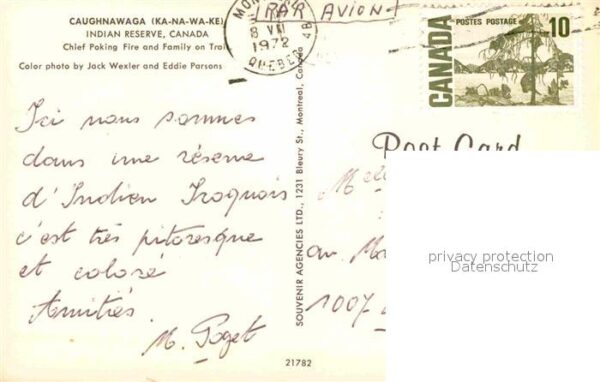 CAUGHNAWAGA (KA-NA-WA-KE)
INDIAN RESERVE, CANADA
Chief Poking Fire and Family on Trail
Color photo by Jack Wexler and Eddie Parsons
PAR AVION
8 VII
1972
QUEBEC
4B
CANADA
POSTES POSTAGE
10
Post Card
Ici nous sommes
dans une réserve
d'Indien Iroquois
c'est très pitoresque
et coloré
Amitiés.
M. Poget
SOUVENIR AGENCIES LTD., 1231 Bleury St., Montreal, Canada
21782
au
1007
privacy protection
Datenschutz